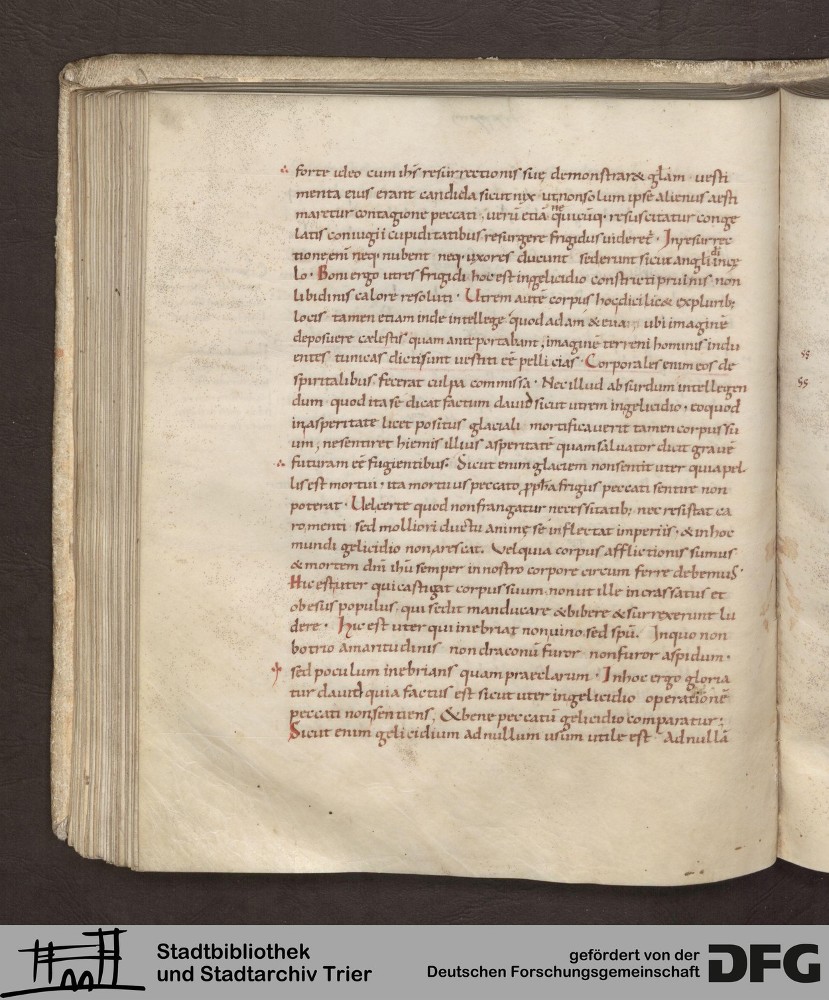 forte ideo cum ihs resurrectionis suę demonstrar& glam · vesti
menta eius erant candida sicut nix · ut non solum ipse alienus aesti
maretur contagione peccati ; verū etiā ne quicūq· resuscitatur conge
latis coniugii cupiditatibus resurgere frigidus uideret · In resurrec
tione enī neq· nubent neq· uxores ducunt sed erunt sicut angli di in cę
lo · Boni ergo utres frigidi hoc est in gelicidio constricti pruinis · non
libidinis calore resoluti · Utrem autē corpus hoc dici lic& ex plurib;
locis tamen etiam inde intellege quod adam & eua ubi imaginē
deposuere cælestis quam ante portabant, imaginē terreni hominis indu
entes tunicas dicti sunt vestiti eē pellicias · Corporales enim eos de
spiritalibus fecerat culpa commissa · Nec illud absurdum intellegen
dum · quod ita se dicat factum dauid sicut utrem in gelicidio · eo quod
in asperitate licet positus glaciali mortificauerit tamen corpus su
um ; ne sentiret hiemis illius asperitatē quam saluator dicit grauē
futuram eē fugientibus · Sicut enim glaciem non sentit uter quia pel
lis est mortui · ita mortuus peccato, frigus peccati sentire non
poterat · Uel certe quod non frangatur necessitatib; nec resistat ca
ro, menti sed molliori ductu animę se inflectat imperiis · & in hoc
mundi gelicidio non arescat. Vel quia corpus afflictionis sumus
& mortem dnī ihū semper in nostro corpore circum ferre debemus·
Hic est uter qui castigat corpus suum · non ut ille incrassatus et
obesus populus · qui sedit manducare & bibere & surrexerunt lu
dere · Hic est uter qui inebriat non uino sed spū. In quo non
botrio amaritudinis non draconū furor · non furor aspidum ·
sed poculum inebrians quam praeclarum · In hoc ergo gloria
tur dauid quia factus est sicut uter in gelicidio operationē
peccati non sentiens, & bene peccatū gelicidio comparatur ;
Sicut enim gelicidium ad nullum usum utile est Ad nullā
Stadtbibliothek
und Stadtarchiv Trier
gefördert von der
Deutschen Forschungsgemeinschaft
DFG